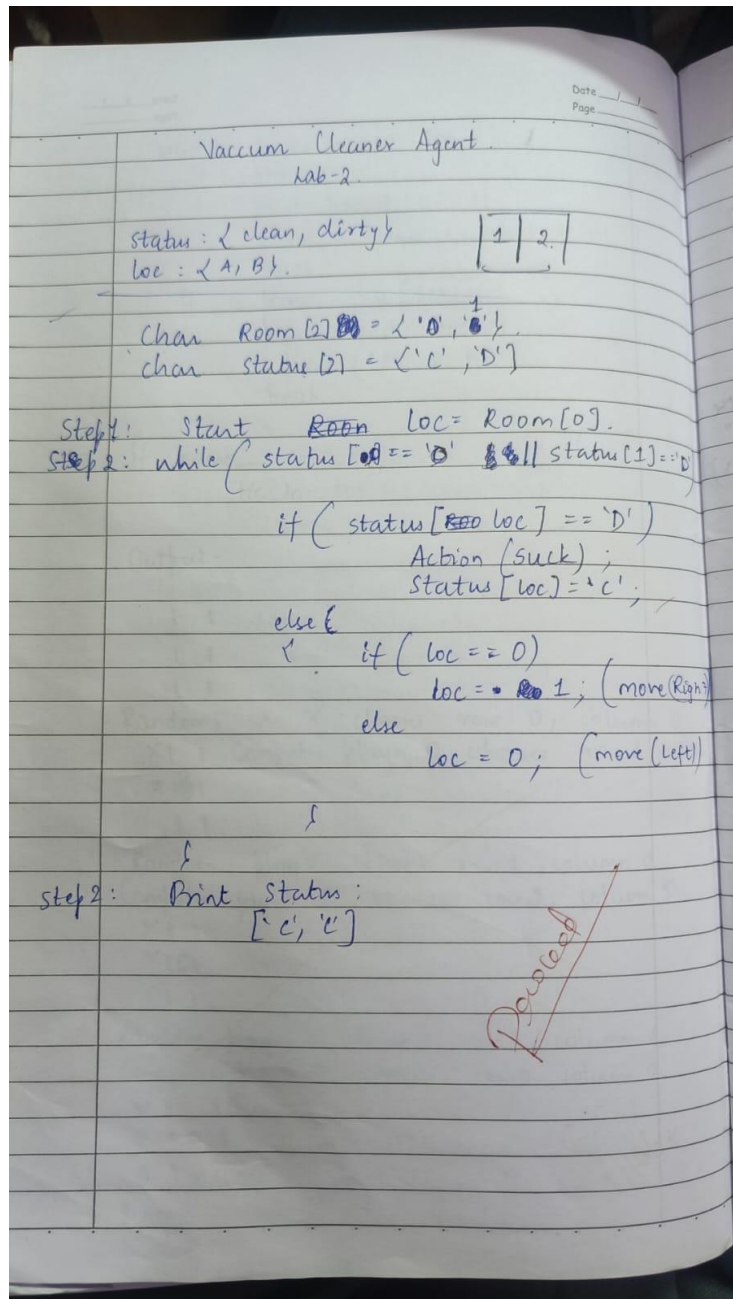 Date
Page
Vaccum Cleaner Agent.
Lab-2.
status : { clean, dirty}
1 2.
loc : {A, B}.
Char Room [2] = { '0', '1' }.
char status [2] = {'C', 'D']
Step 1: Start loc = Room [0].
Step 2: while ( status [0] == 'D' || status [1] == 'D'
if ( status [ loc ] == 'D' )
Action (suck) ;
Status [loc] = 'C' ;
else {
{ if ( loc == 0)
loc = 1 ; (move (Right)
else
loc = 0 ; (move (Left))
}
}
Step 2: Print Status :
['C', 'C']
Proceed